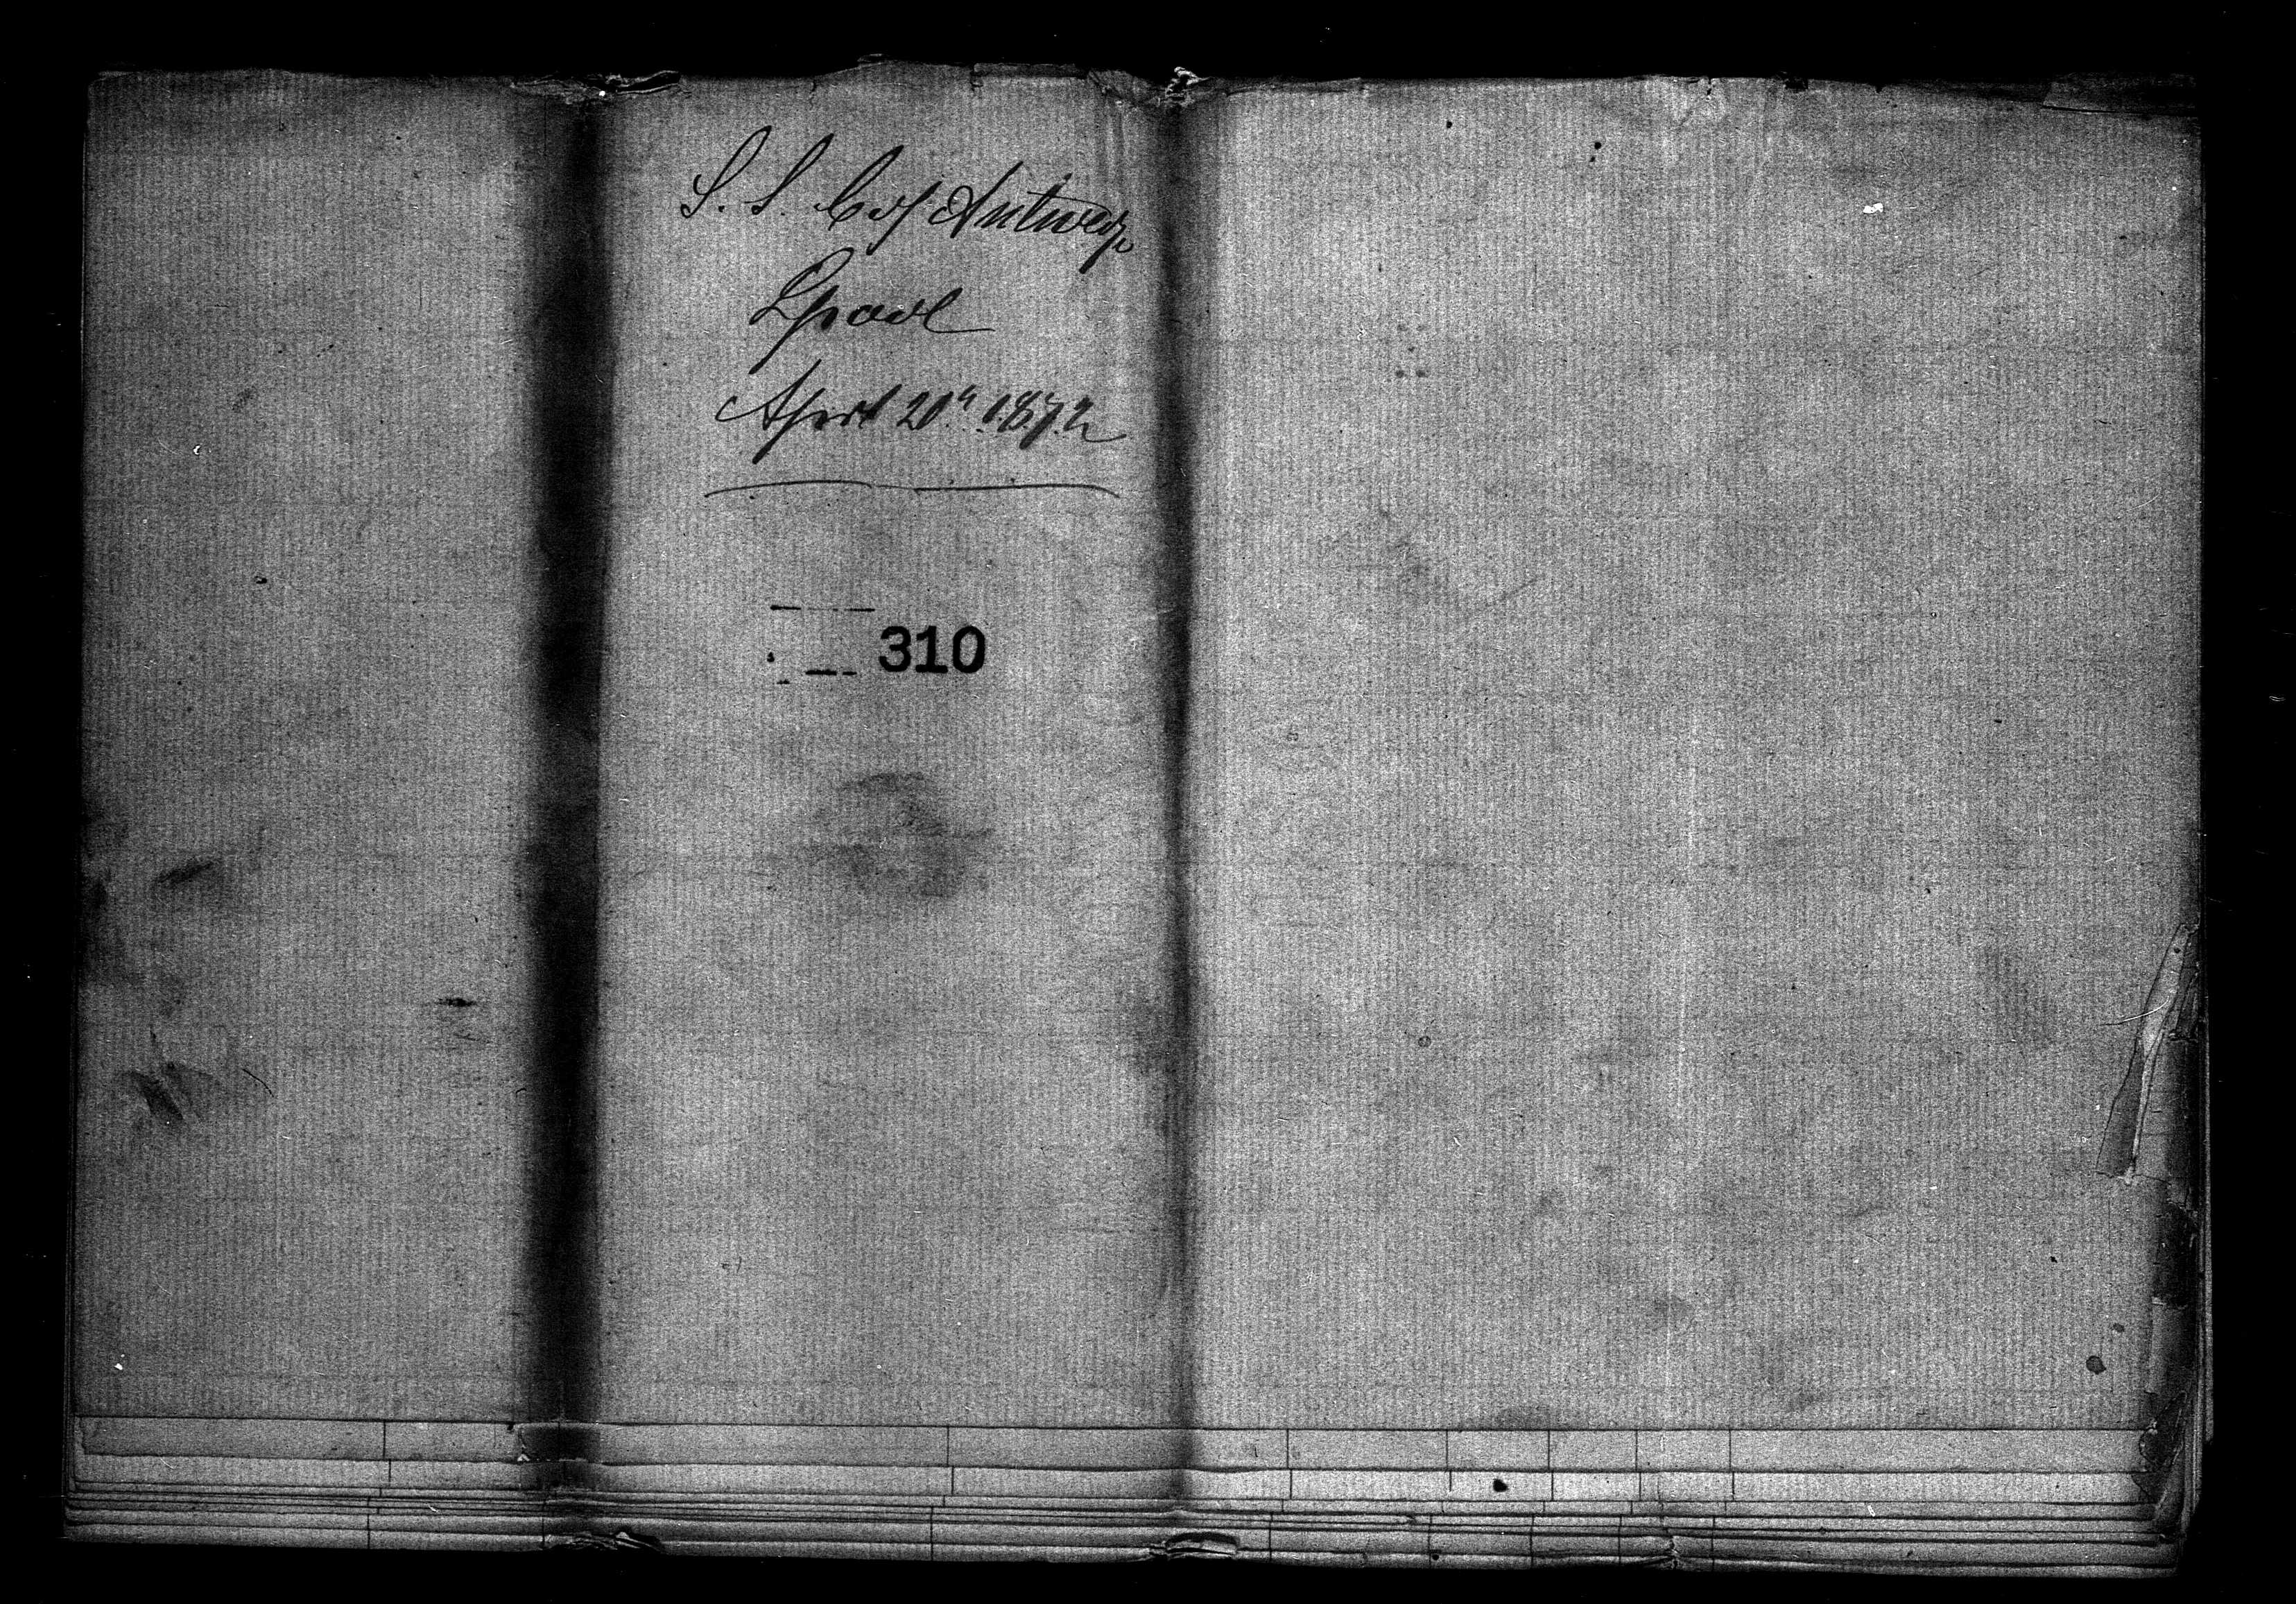 S. S. C of Antwerp
Lpool
April 20th 1872
310